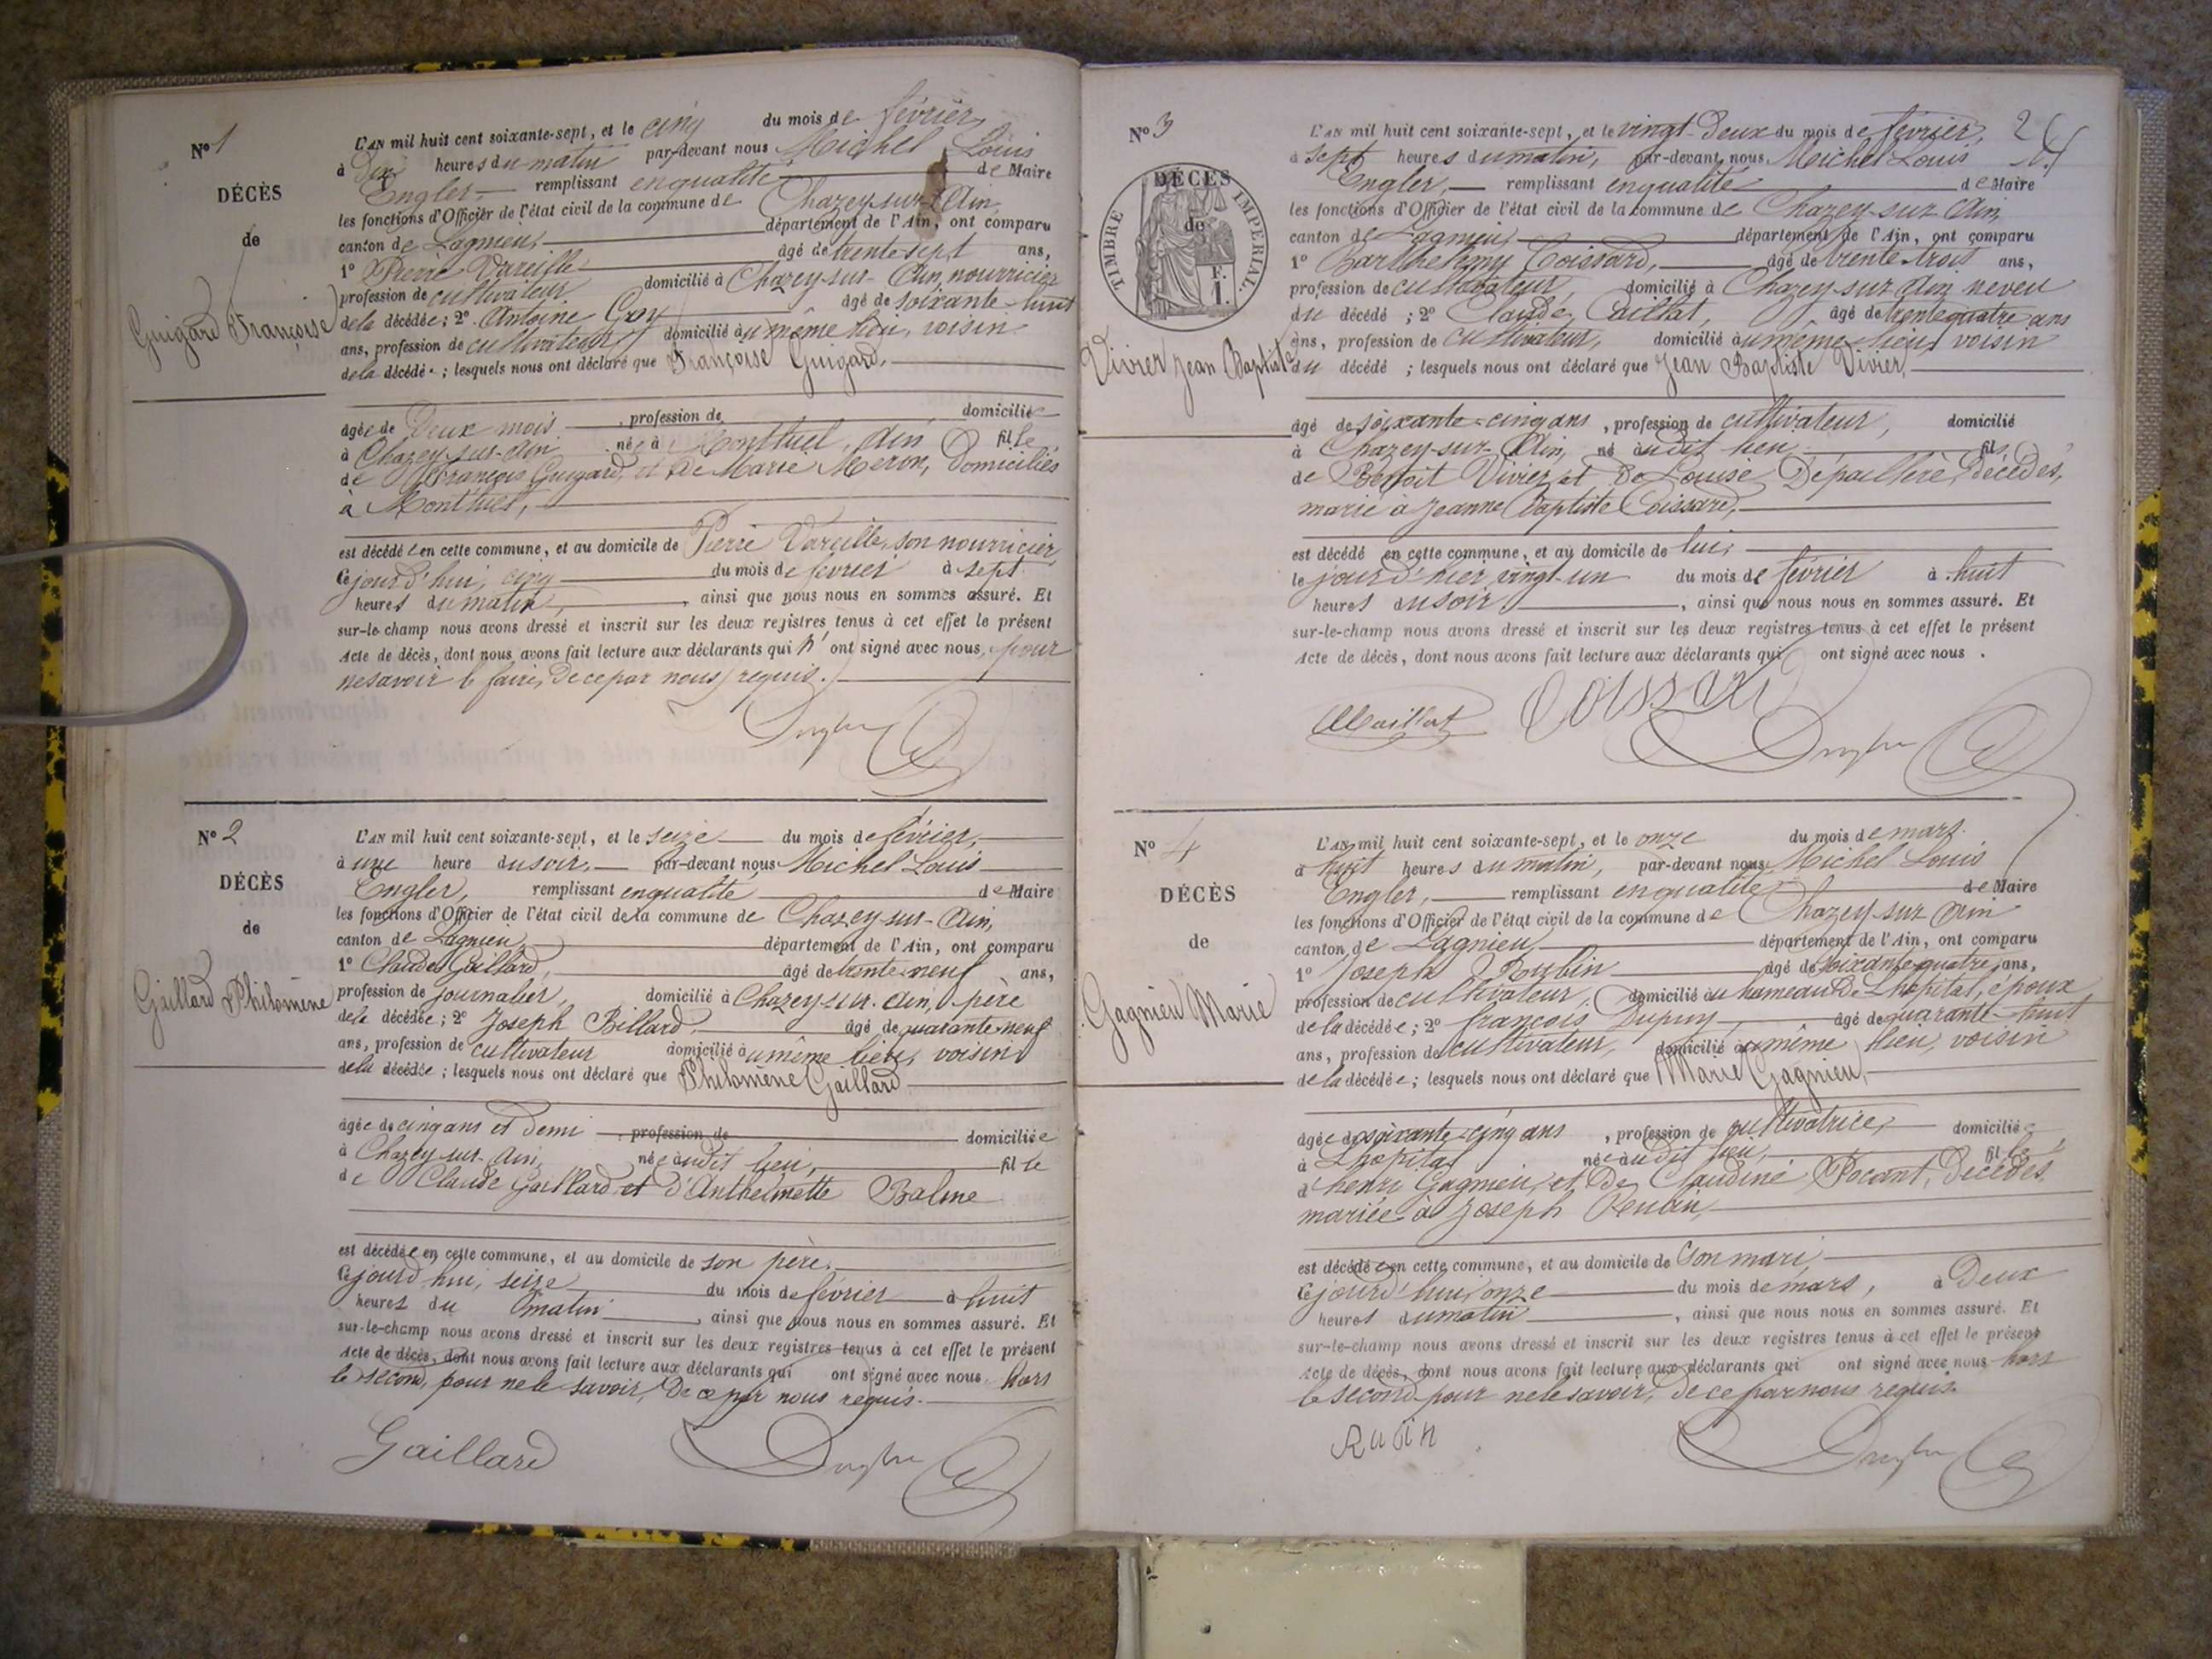 Nº 1
DÉCÈS
de
Guigard Françoise
L'AN mil huit cent soixante-sept, et le cinq du mois de février,
à Dix heures du matin par-devant nous Michel Louis
Engler remplissant en qualité de Maire
les fonctions d'Officier de l'état civil de la commune de Chazey-sur-Ain,
canton de Lagnieu, département de l'Ain, ont comparu
1º Pierre Vareille âgé de trente sept ans,
profession de cultivateur domicilié à Chazey-sur-Ain, nourricier
de la décédée; 2º Antoine âgé de soixante-huit
ans, profession de cultivateur, domicilié au même lieu, voisin
de la décédée; lesquels nous ont déclaré que Françoise Guigard,
âgée de Deux mois, profession de domiciliée
à Chazey-sur-Ain née à Montluel, Ain fille
de François Guigard, et de Marie Meron, Domiciliés
à Montluel,
est décédée en cette commune, et au domicile de Pierre Vareille, son nourricier
Cejourd'hui, cinq du mois de février à sept
heures du matin, ainsi que nous nous en sommes assuré. Et
sur-le-champ nous avons dressé et inscrit sur les deux registres tenus à cet effet le présent
Acte de décès, dont nous avons fait lecture aux déclarants qui n'ont signé avec nous, pour
ne savoir le faire, de ce par nous requis.
Engler
Nº 2
DÉCÈS
de
Gaillard Philomène
L'AN mil huit cent soixante-sept, et le seize du mois de février,
à une heure du soir, par-devant nous Michel Louis
Engler, remplissant en qualité de Maire
les fonctions d'Officier de l'état civil de la commune de Chazey-sur-Ain,
canton de Lagnieu, département de l'Ain, ont comparu
1º Claude Gaillard, âgé de trente-neuf ans,
profession de journalier, domicilié à Chazey-sur-Ain, père
de la décédée; 2º Joseph Billard, âgé de quarante neuf
ans, profession de cultivateur domicilié au même lieu, voisin
de la décédée; lesquels nous ont déclaré que Philomène Gaillard
âgée de cinq ans et Demi, profession de domiciliée
à Chazey-sur-Ain, née audit lieu, fille
de Claude Gaillard et d'Anthelmette Balme
est décédée en cette commune, et au domicile de son père.
Cejourd'hui, seize du mois de février à huit
heures du matin, ainsi que nous nous en sommes assuré. Et
sur-le-champ nous avons dressé et inscrit sur les deux registres tenus à cet effet le présent
Acte de décès, dont nous avons fait lecture aux déclarants qui ont signé avec nous hors
le second, pour ne le savoir, De ce par nous requis.
Gaillard Engler
Nº 3
DÉCÈS
de
TIMBRE IMPÉRIAL.
Vivier Jean Baptiste
L'AN mil huit cent soixante-sept, et le vingt-Deux du mois de février,
à sept heures du matin, par-devant nous Michel Louis
Engler, remplissant en qualité de Maire
les fonctions d'Officier de l'état civil de la commune de Chazey-sur-Ain,
canton de Lagnieu, département de l'Ain, ont comparu
1º Barthelemy Coissard, âgé de trente-trois ans,
profession de cultivateur, domicilié à Chazey-sur-Ain neveu
du décédé; 2º Claude Caillat, âgé de trente quatre ans
ans, profession de cultivateur, domicilié au même lieu, voisin
du décédé; lesquels nous ont déclaré que Jean Baptiste Vivier,
âgé de soixante-cinq ans, profession de cultivateur, domicilié
à Chazey-sur-Ain, né audit lieu fils
de Benoit Vivier et De Louise Dépaillère, Décédés,
marié à Jeanne Baptiste Coissard,
est décédé en cette commune, et au domicile de lui,
le jour d'hier vingt-un du mois de février à huit
heures du soir, ainsi que nous nous en sommes assuré. Et
sur-le-champ nous avons dressé et inscrit sur les deux registres tenus à cet effet le présent
Acte de décès, dont nous avons fait lecture aux déclarants qui ont signé avec nous.
Coissard
Engler
Nº 4
DÉCÈS
de
Gagnieu Marie
L'AN mil huit cent soixante-sept, et le onze du mois de mars
à huit heures du matin, par-devant nous Michel Louis
Engler, remplissant en qualité de Maire
les fonctions d'Officier de l'état civil de la commune de Chazey-sur-Ain
canton de Lagnieu département de l'Ain, ont comparu
1º Joseph Rubin âgé de soixante-quatre ans,
profession de cultivateur, domicilié au hameau De Lhopital, époux
de la décédée; 2º francois Dupuy, âgé de quarante-huit
ans, profession de cultivateur, domicilié au même lieu, voisin
de la décédée; lesquels nous ont déclaré que Marie Gagnieu,
âgée de soixante-cinq ans, profession de cultivatrice, domiciliée
à Lhopital née audit lieu, fille
d'henri Gagnieu, et De Claudine Pocant, Décédés,
mariée à Joseph Rubin,
est décédée en cette commune, et au domicile de son mari,
Cejourd'hui onze du mois de mars, à Deux
heures du matin, ainsi que nous nous en sommes assuré. Et
sur-le-champ nous avons dressé et inscrit sur les deux registres tenus à cet effet le présent
Acte de décès, dont nous avons fait lecture aux déclarants qui ont signé avec nous hors
le second pour ne le savoir, de ce par nous requis.
Engler